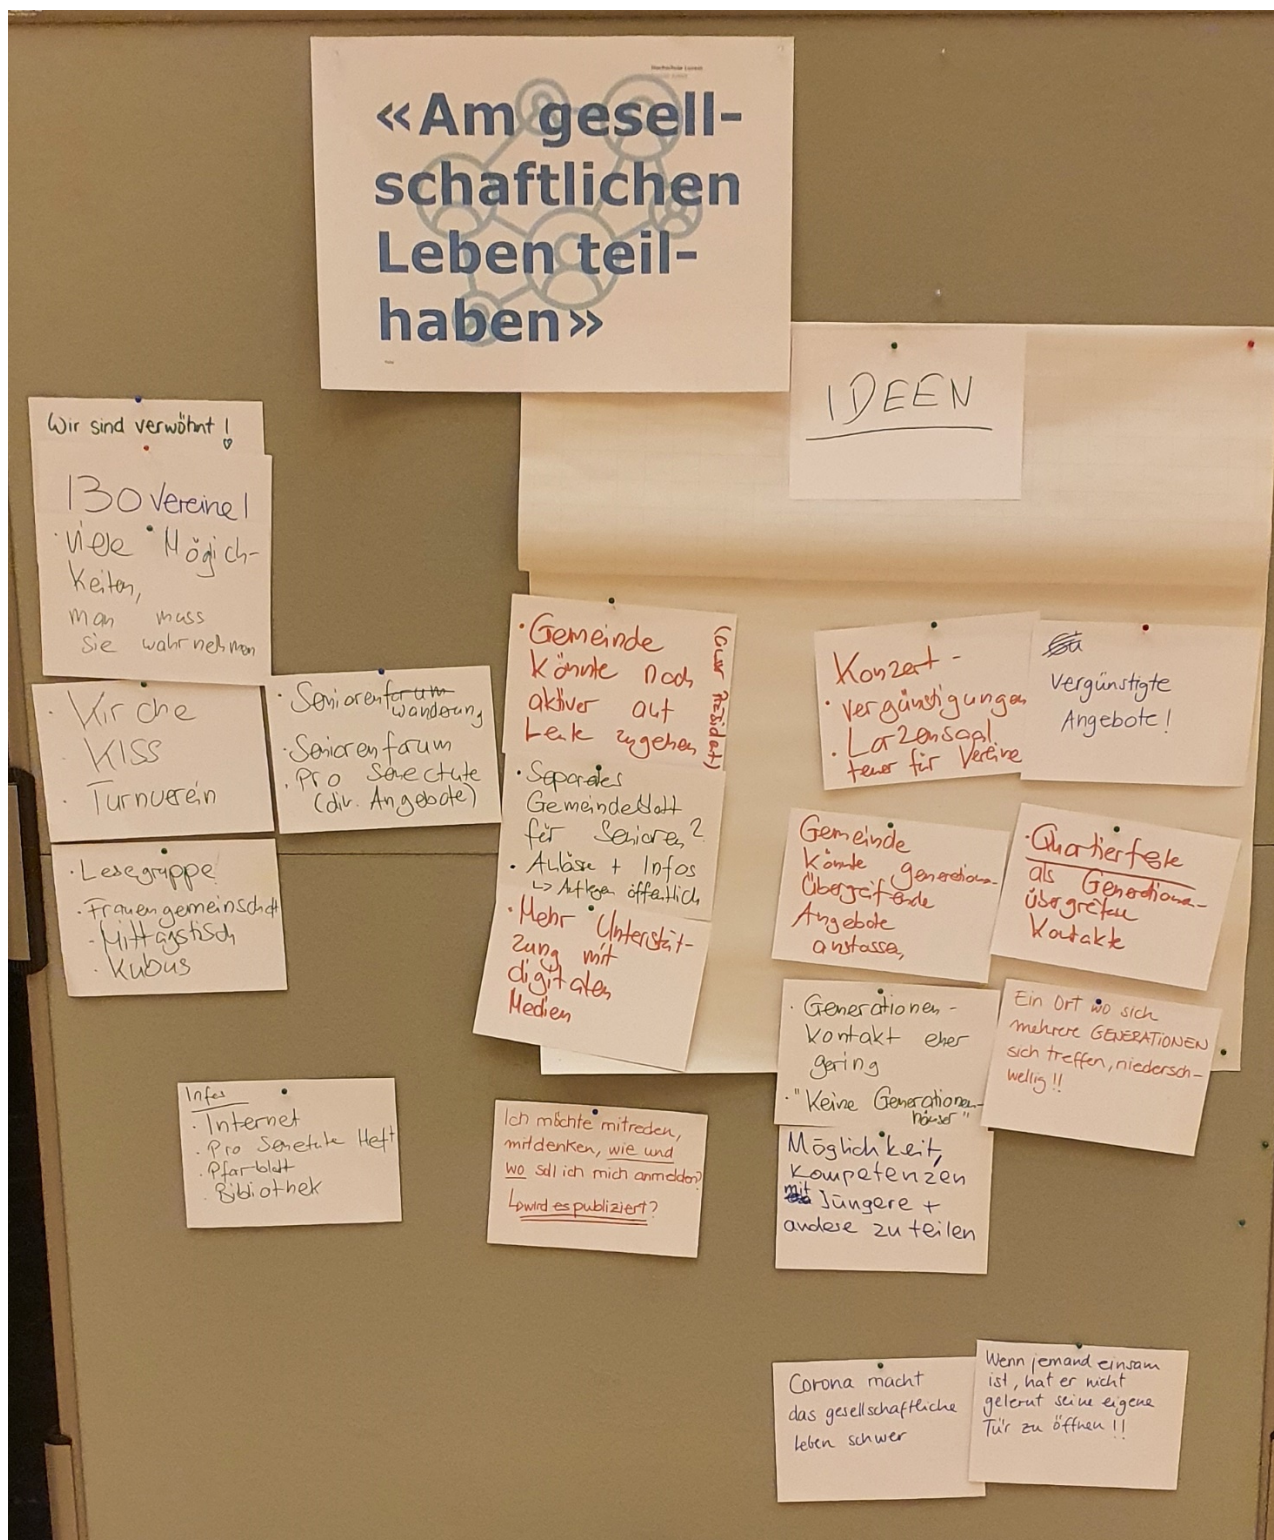 Hochschule Luzern
«Am gesell-
schaftlichen
Leben teil-
haben»
IDEEN
Wir sind verwöhnt!
130 Vereine!
· viele Möglich-
keiten,
man muss
sie wahrnehmen
· Kirche
KISS
· Turnverein
· Seniorenforum
wanderung
· Seniorenforum
· Pro Senectute
(div. Angebote)
· Lesegruppe
· Frauengemeinschaft
· Mittagstisch
· Kubus
Infos
· Internet
· Pro Senectute Heft
· Pfarrblatt
· Bibliothek
· Gemeinde
könnte noch
aktiver auf
Leute zugehen
· Separates
Gemeindeblatt
für Senioren?
· Anlässe + Infos
↳ Auflegen öffentlich
· Mehr Unterstüt-
zung mit
digitalen
Medien
Ich möchte mitreden,
mitdenken, wie und
wo soll ich mich anmelden?
↳ wird es publiziert?
Konzert-
· vergünstigungen
· Lorzensaal
teuer für Vereine
vergünstigte
Angebote!
Gemeinde
könnte generationen-
Übergreifende
Angebote
anstossen,
· Quartierfeste
als Generationen-
übergreifende
Kontakte
· Generationen-
kontakt eher
gering
· "Keine Generationen-
häuser"
Ein Ort wo sich
mehrere GENERATIONEN
sich treffen, niedersch-
wellig!!
Möglichkeit,
Kompetenzen
mit Jüngere +
andere zu teilen
Corona macht
das gesellschaftliche
Leben schwer
Wenn jemand einsam
ist, hat er nicht
gelernt seine eigene
Tür zu öffnen!!